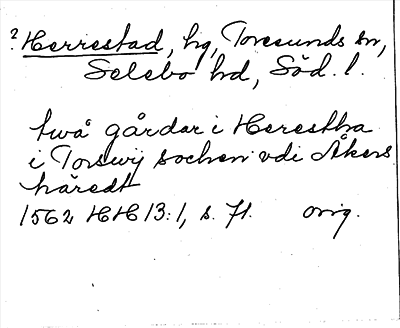 ? Herrestad, hg, Toresunds sn,
Selebo hd, Söd. l.
två gårdar i Herestha
i Torswij sochen vdi Åkers
häredt
1562 HH 13:1, s. 71. orig.